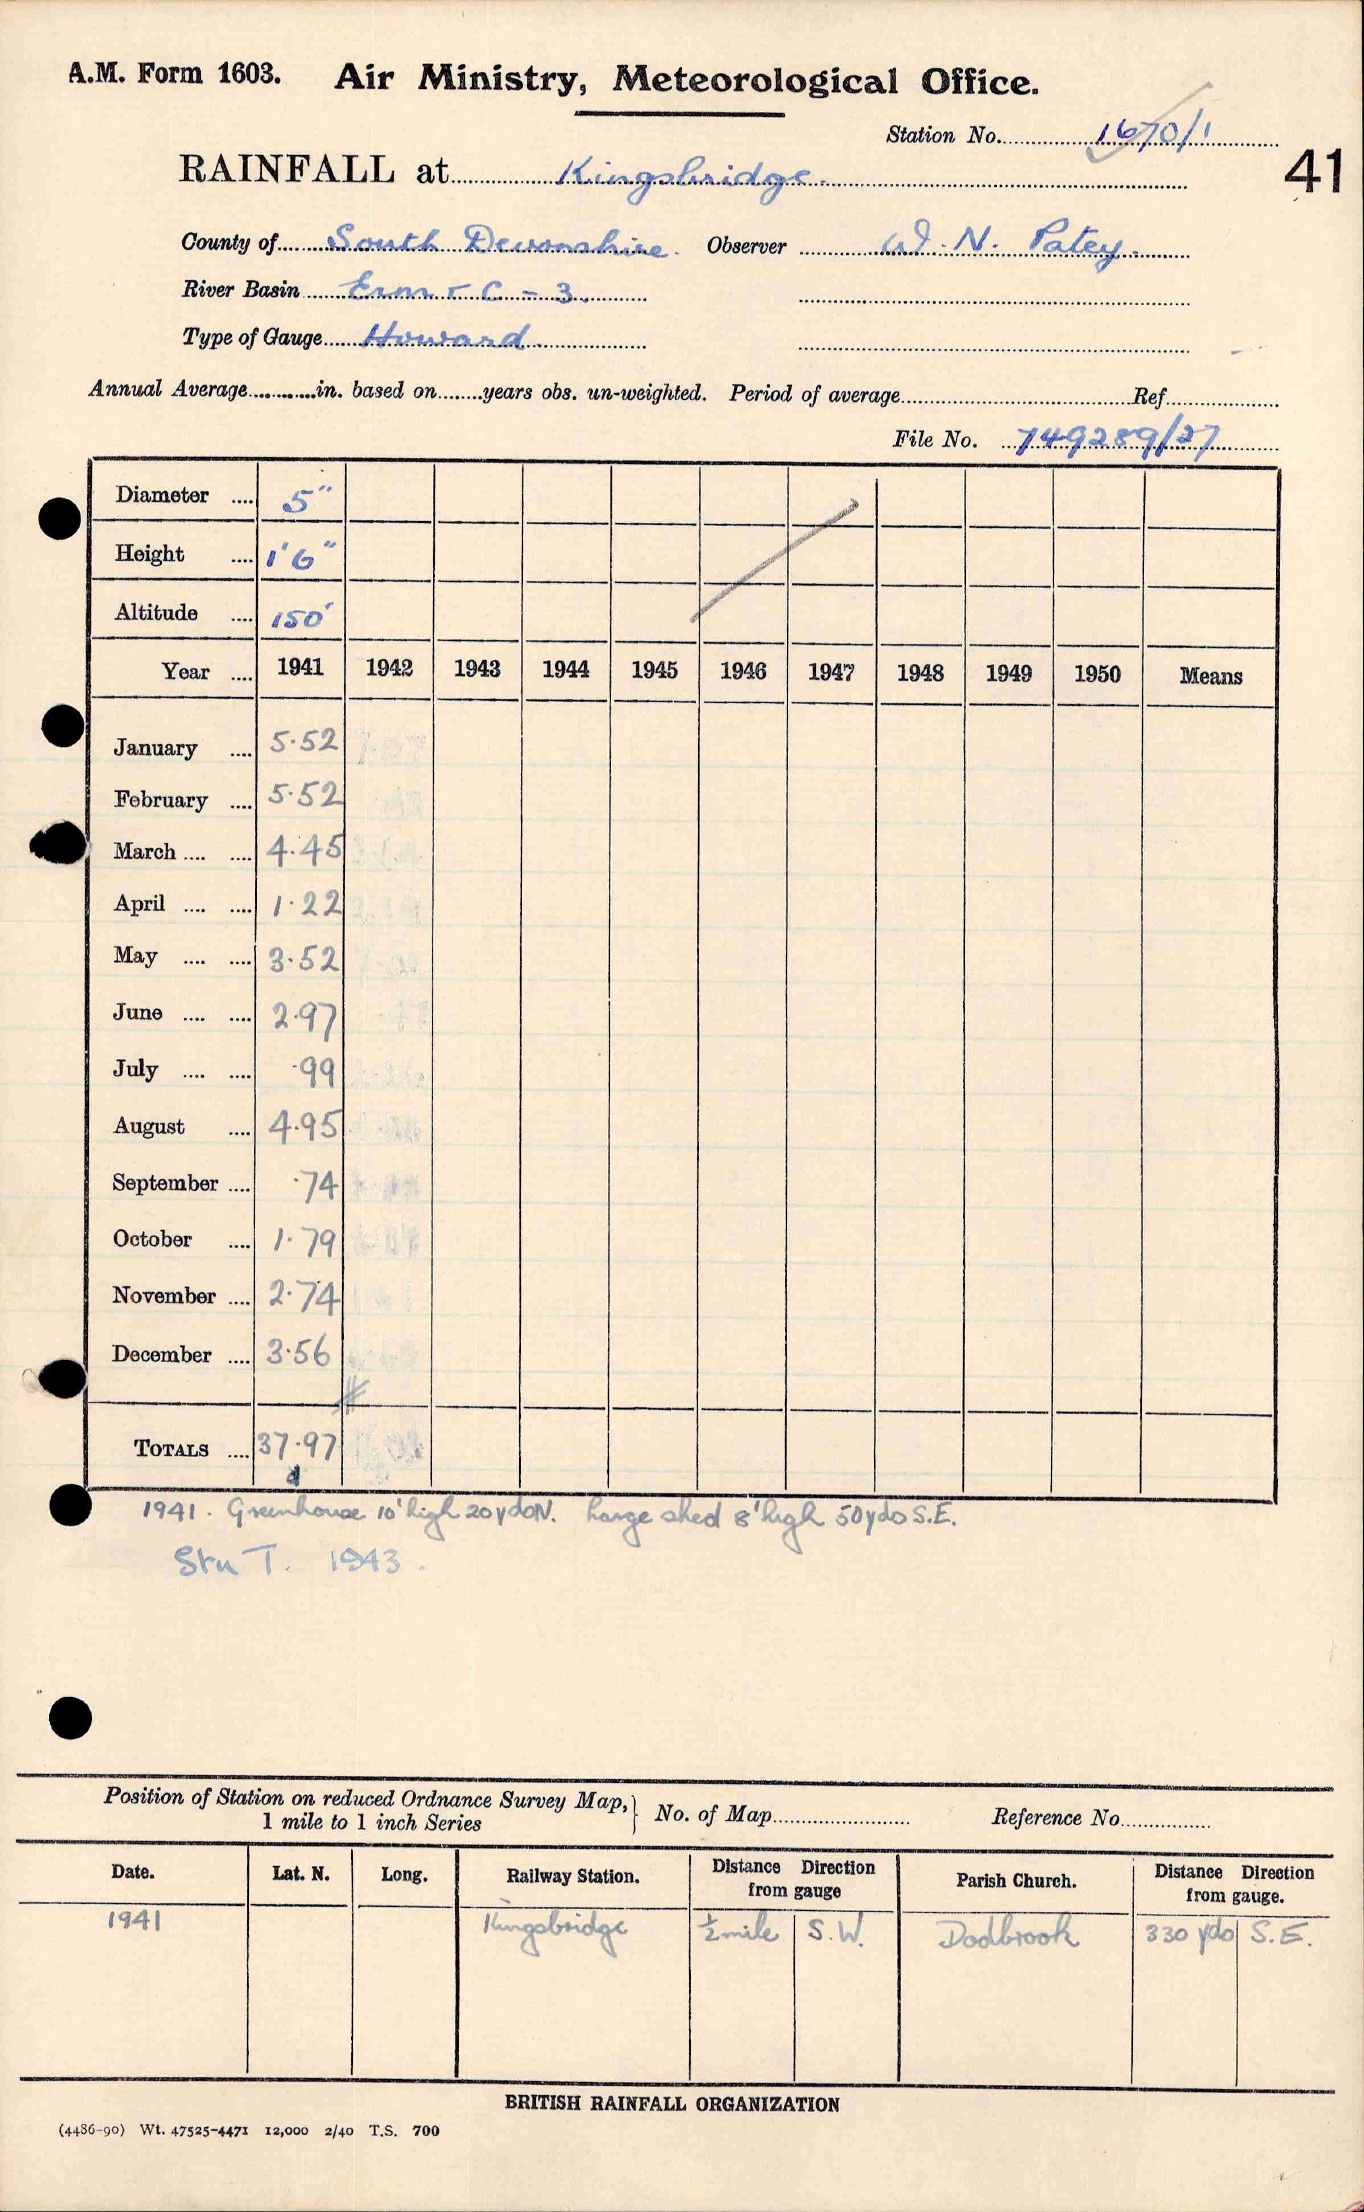 A.M. Form 1603. Air Ministry, Meteorological Office.
Station No. 1670/1
41
RAINFALL at Kingsbridge.
County of South Devonshire. Observer W. N. Patey.
River Basin Erme C - 3.
Type of Gauge Howard.
Annual Average............in. based on........years obs. un-weighted. Period of average........Ref........
File No. 749289/27
Diameter .... 5"
Height .... 1'6"
Altitude .... 150'
Year .... 1941 1942 1943 1944 1945 1946 1947 1948 1949 1950 Means
January .... 5.52
February .... 5.52
March .... .... 4.45
April .... .... 1.22
May .... .... 3.52
June .... .... 2.97
July .... .... .99
August .... 4.95
September .... .74
October .... 1.79
November .... 2.74
December .... 3.56
TOTALS .... 37.97
1941. Greenhouse 10' high 20 yds N. Large shed 8' high 50 yds S.E.
Stn T. 1943.
Position of Station on reduced Ordnance Survey Map,
1 mile to 1 inch Series } No. of Map........ Reference No........
Date. Lat. N. Long. Railway Station. Distance Direction from gauge Parish Church. Distance Direction from gauge.
1941 Kingsbridge ½ mile S.W. Dodbrook 330 yds S.E.
BRITISH RAINFALL ORGANIZATION
(4486-90) Wt. 47525-4471 12,000 2/40 T.S. 700